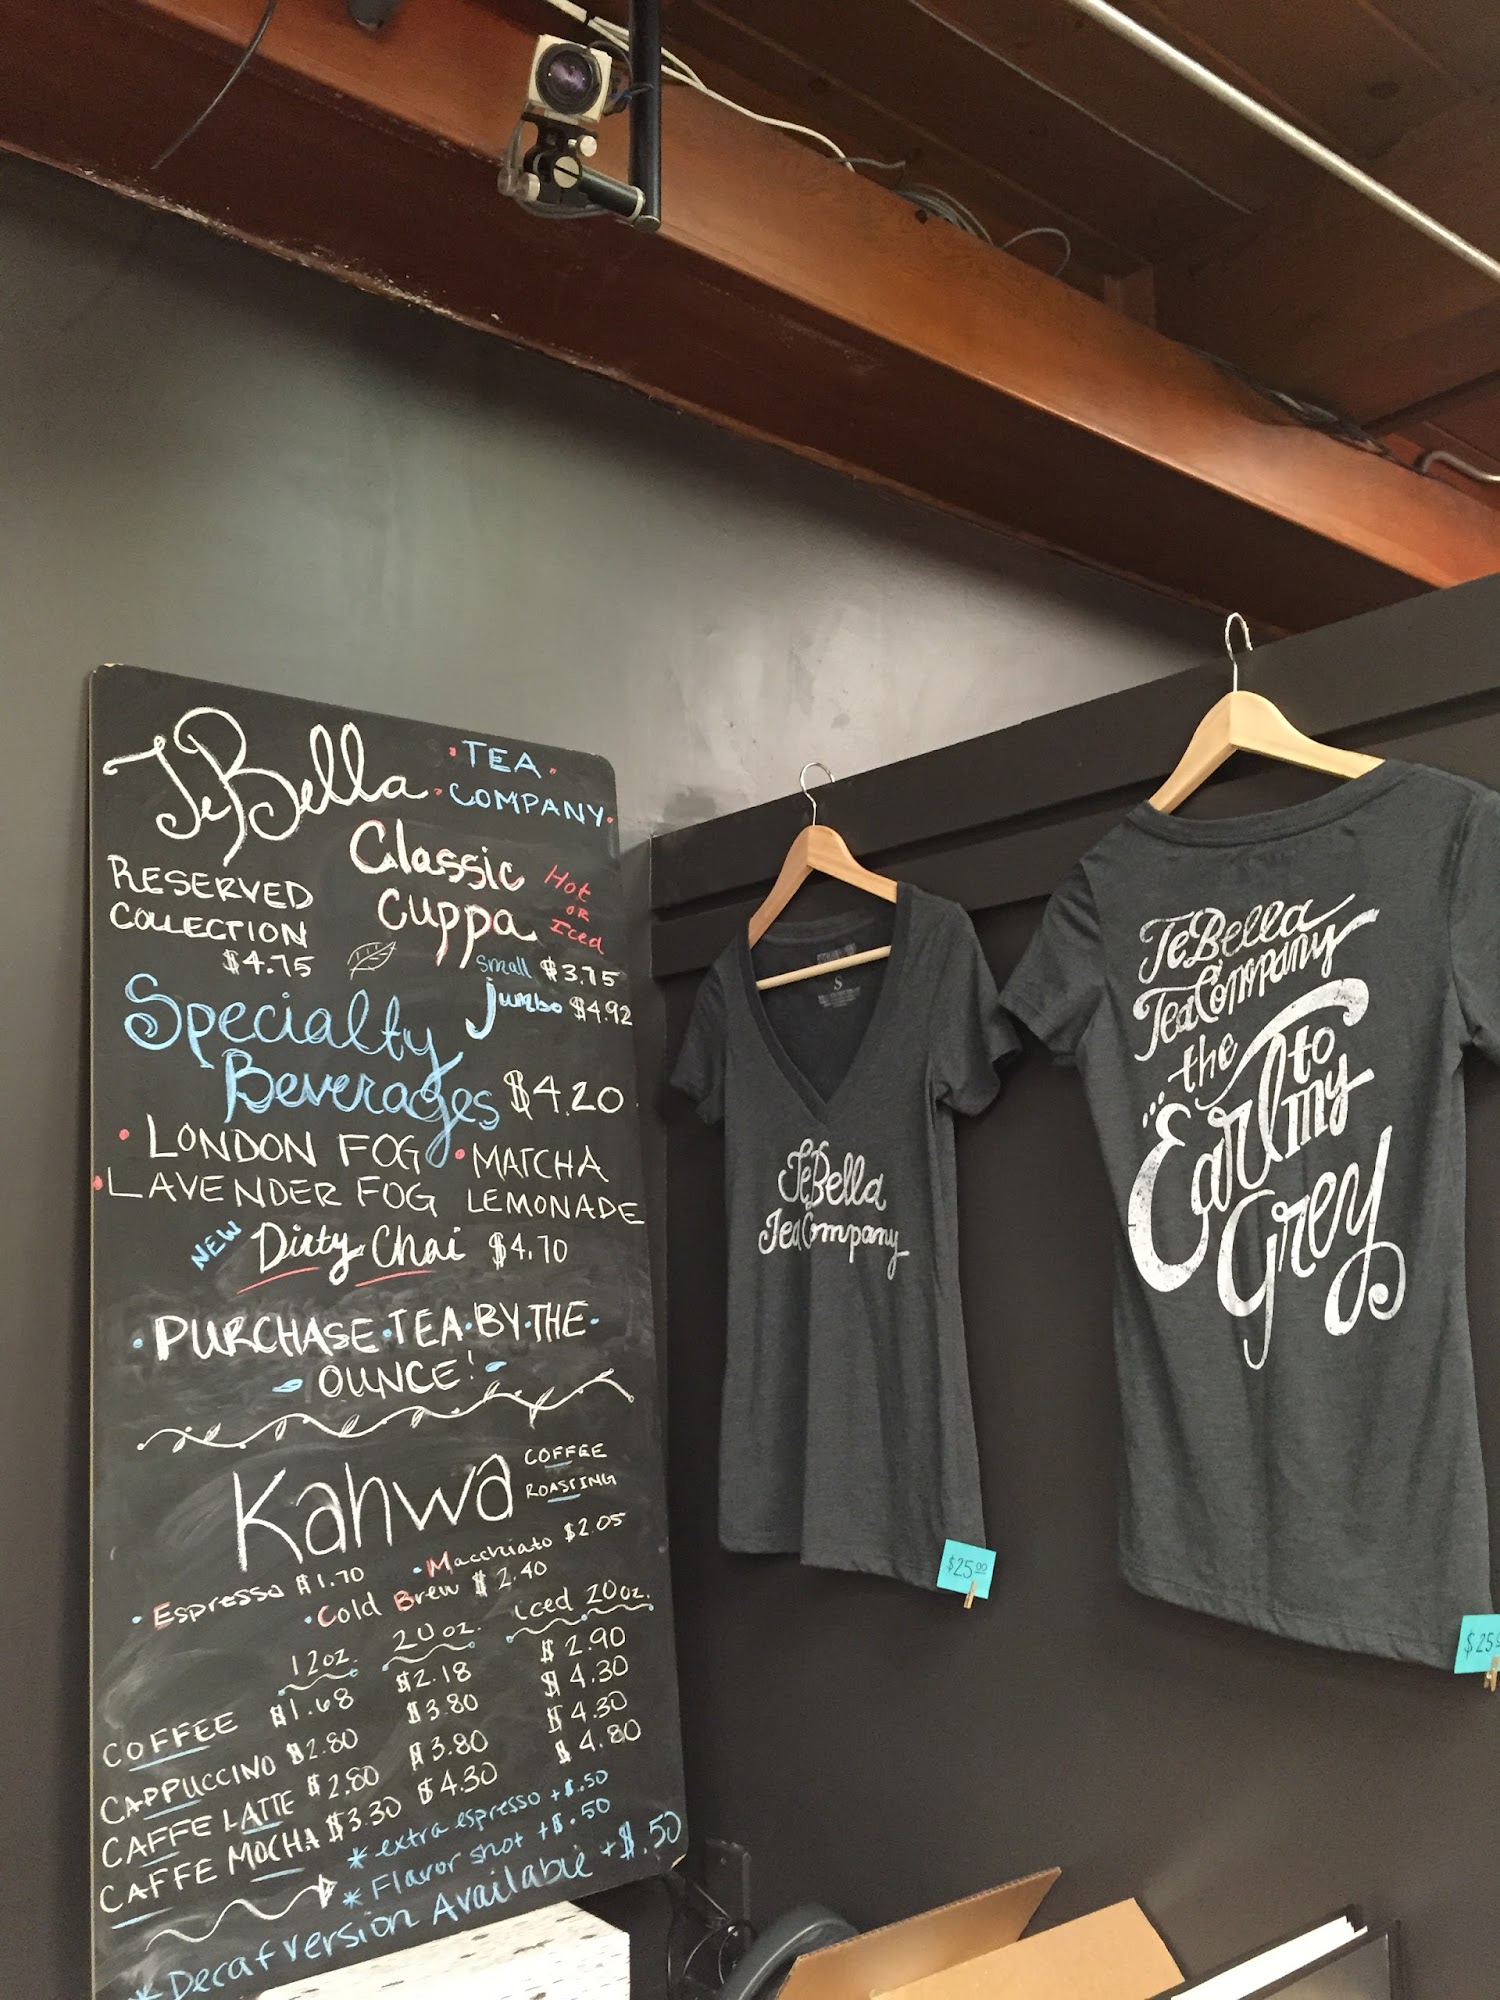 TeBella
• TEA •
• COMPANY •
RESERVED
COLLECTION
$4.75
Classic
Cuppa
Hot
OR
Iced
small $3.75
jumbo $4.92
Specialty
Beverages $4.20
• LONDON FOG
• LAVENDER FOG
• MATCHA
LEMONADE
NEW Dirty Chai $4.70
• PURCHASE • TEA • BY • THE •
OUNCE!
Kahwa
COFFEE
ROASTING
• Espresso $1.70
• Macchiato $2.05
• Cold Brew $2.40
12oz. 20oz. iced 20oz.
COFFEE $1.68 $2.18 $2.90
CAPPUCCINO $2.80 $3.80 $4.30
CAFFE LATTE $2.80 $3.80 $4.30
CAFFE MOCHA $3.30 $4.30 $4.80
* extra espresso +$.50
* Flavor shot +$.50
* Decaf version Available +$.50
S
TeBella
TeaCompany
$25.00
TeBella
TeaCompany
...the
Earl to
my
Grey